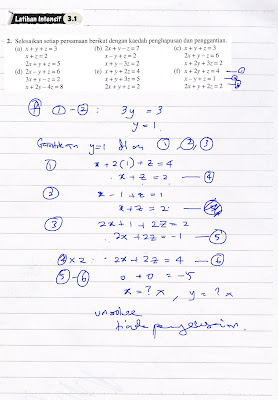 Latihan Intensif 3.1
2. Selesaikan setiap persamaan berikut dengan kaedah penghapusan dan penggantian.
(a) x + y + z = 3 (b) 2x + y − z = 7 (c) x + y + z = 3
x + z = 2 x − y + z = 2 2x + y − z = 6
2x + y + z = 5 x + y − 3z = 2 x + 2y + 3z = 2
(d) 2x − y + z = 6 (e) x + y + 2z = 4 (f) x + 2y + z = 4 — ①
3x + y − z = 2 x + y + 3z = 5 x − y + z = 1 — ②
x + 2y − 4z = 8 2x + y + z = 2 x + y + 2z = 2 — ③
① - ② : 3y = 3
y = 1.
Gantikan y=1 dlm ①, ②, ③
① x + 2(1) + z = 4
x + z = 2 — ④
② x - 1 + z = 1
x + z = 2
③ 2x + 1 + 2z = 2
2x + 2z = -1 — ⑤
④ x 2 : 2x + 2z = 4 — ⑥
⑤ - ⑥ 0 + 0 = -5
x = ? x , y = ? x
tiada penyelesaian.